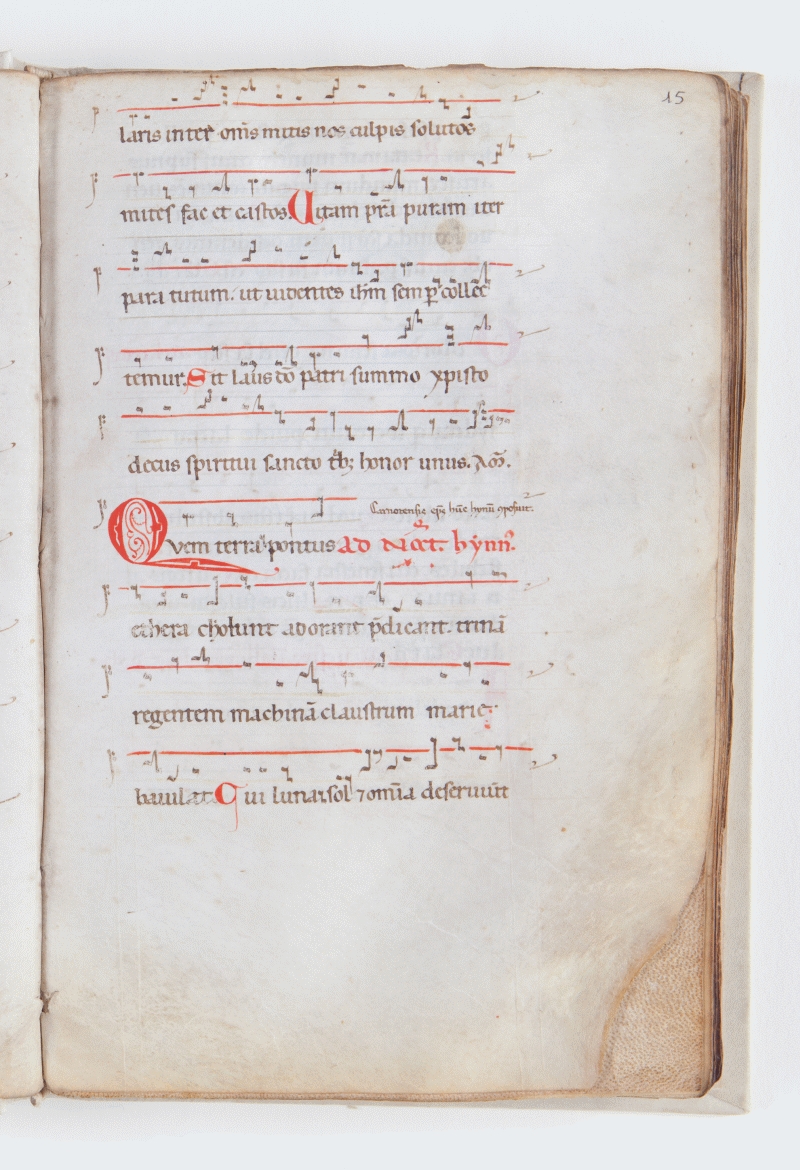 15
laris inter om̄s mitis nos culpis solutos
mites fac et castos. Uitam pr̄a puram iter
para tutum. ut uidentes ih̄m semp̄ collec
temur. Sit laus do̅ patri summo xpisto
decus spiritui sancto tb; honor unus. Am̄.
Quem terra pontus Ad Noct. hỳnn̄.
ethera cholunt adorant p̄dicant. trinā
regentem machinā claustrum marie
baiulat. Qui luna. sol ⁊ om̄ia deseruiūt